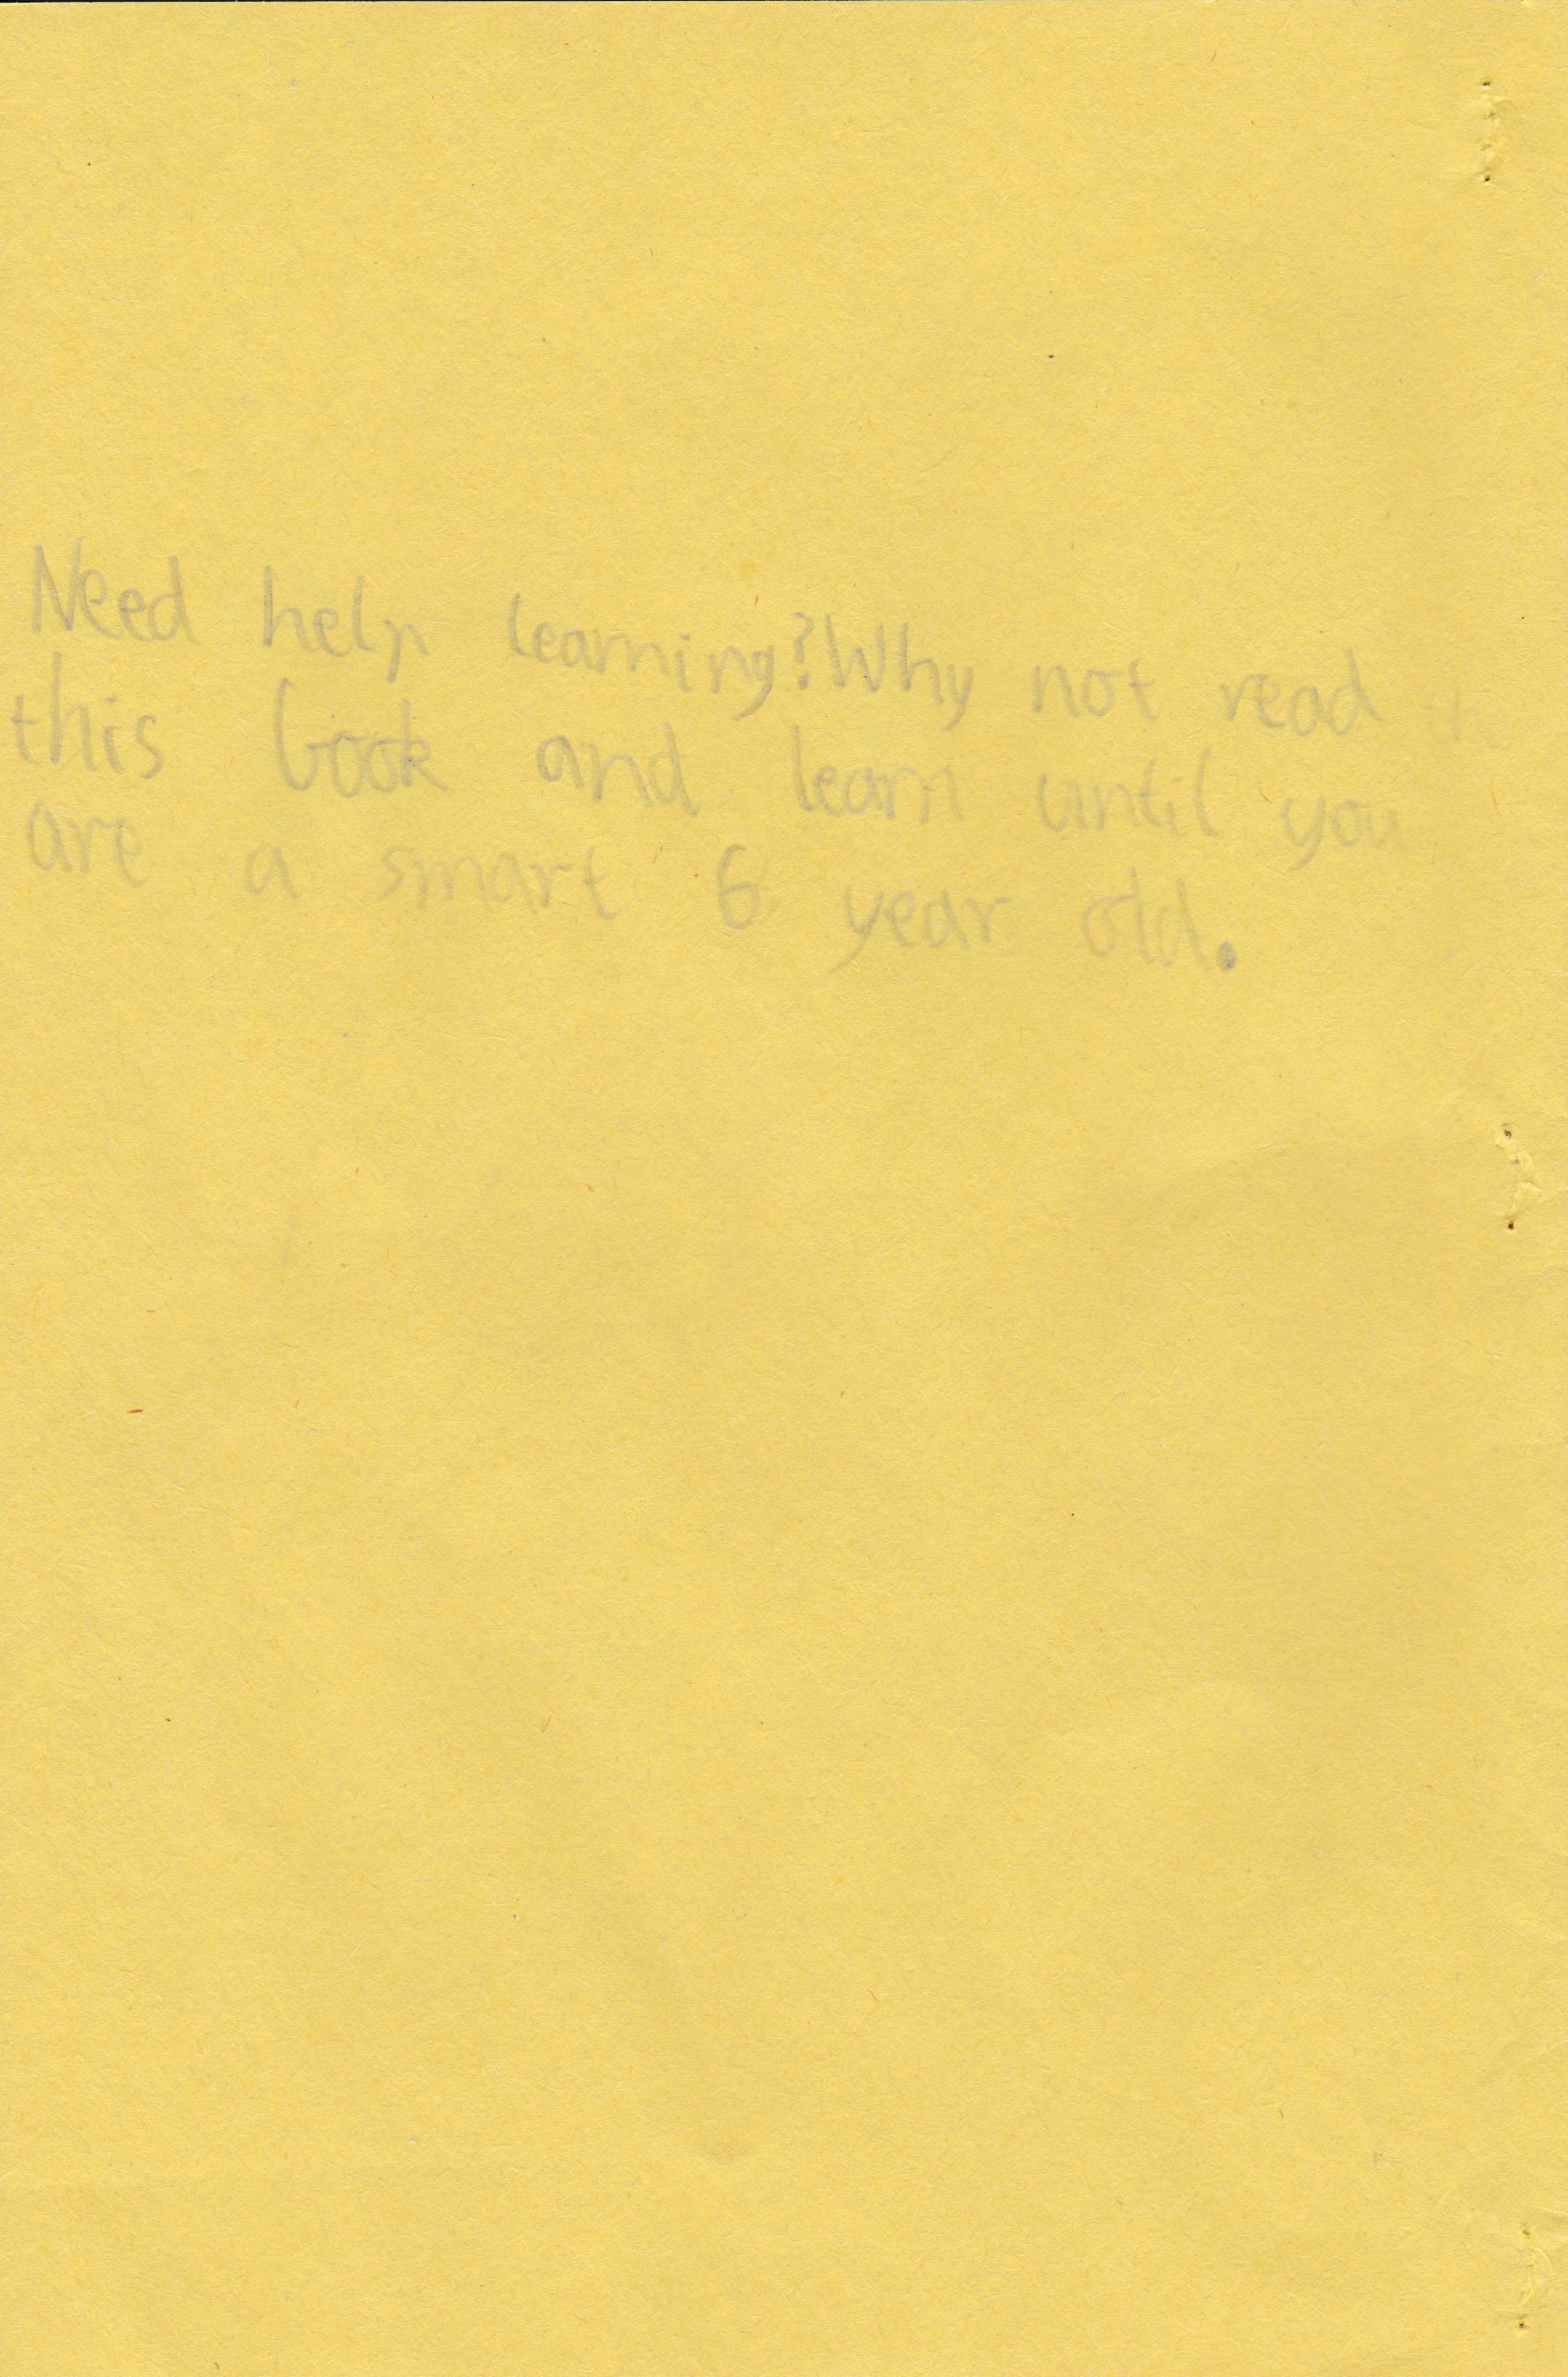 Need help learning? Why not read
this book and learn until you
are a smart 6 year old.